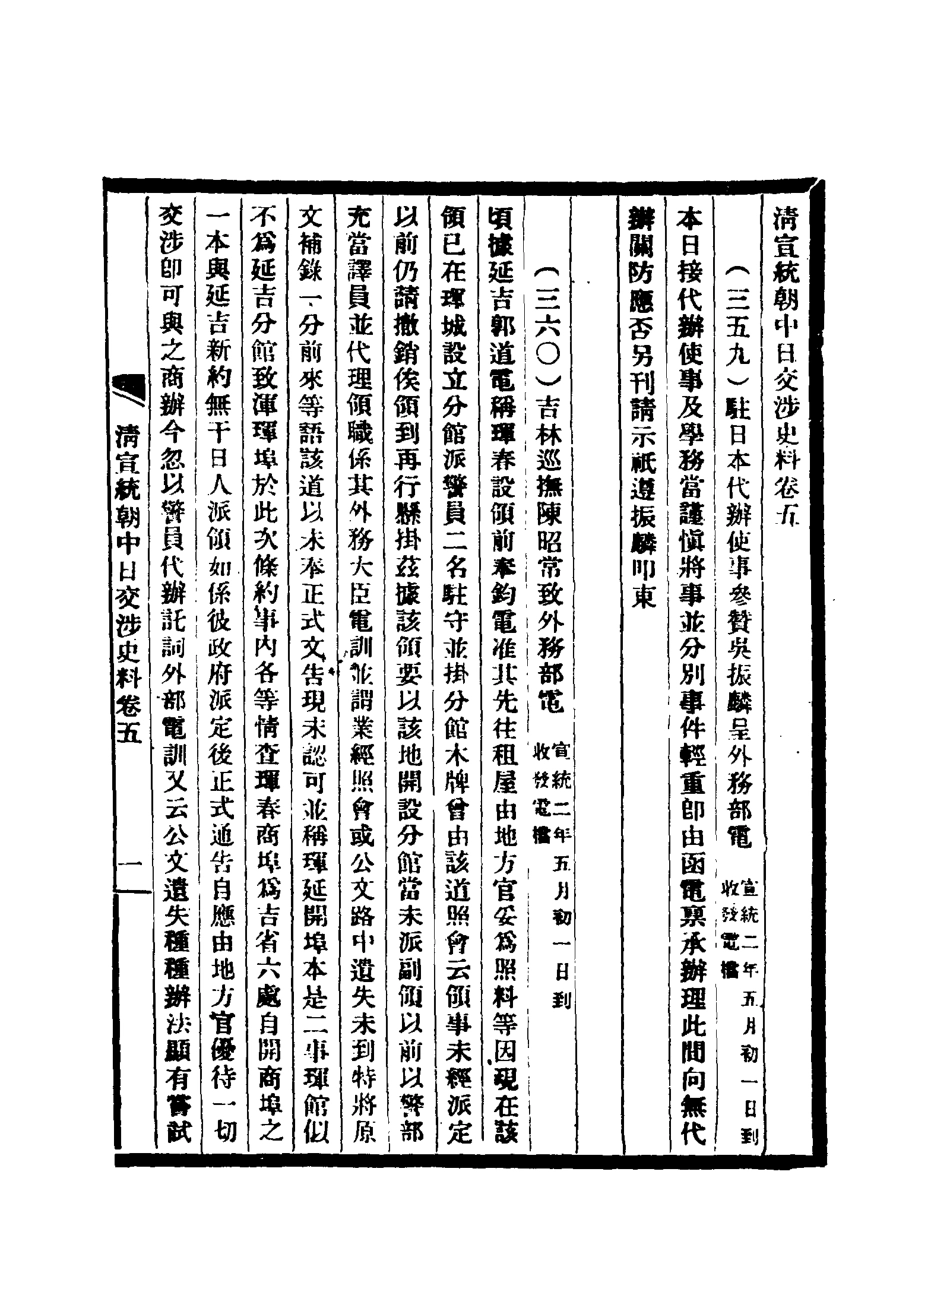 清宣統朝中日交涉史料卷五
(三五九)駐日本代辦使事參贊吳振麟呈外務部電 宣統二年五月初一日到
收發電檔
本日接代辦使事及學務當謹愼將事並分別事件輕重卽由函電禀承辦理此間向無代
辦關防應否另刊請示祇遵振麟叩東
(三六〇)吉林巡撫陳昭常致外務部電 宣統二年五月初一日到
收發電檔
頃據延吉郭道電稱琿春設領前奉鈞電准其先往租屋由地方官妥爲照料等因現在該
領已在琿城設立分館派警員二名駐守並掛分館木牌曾由該道照會云領事未經派定
以前仍請撤銷俟領到再行懸掛茲據該領要以該地開設分館當未派副領以前以警部
充當譯員並代理領職係其外務大臣電訓並謂業經照會或公文路中遺失未到特將原
文補錄一分前來等語該道以未奉正式文告現未認可並稱琿延開埠本是二事琿館似
不爲延吉分館致渾琿埠於此次條約事內各等情查琿春商埠爲吉省六處自開商埠之
一本與延吉新約無干日人派領如係彼政府派定後正式通告自應由地方官優待一切
交涉卽可與之商辦今忽以警員代辦託詞外部電訓又云公文遺失種種辦法顯有嘗試
清宣統朝中日交涉史料卷五
一